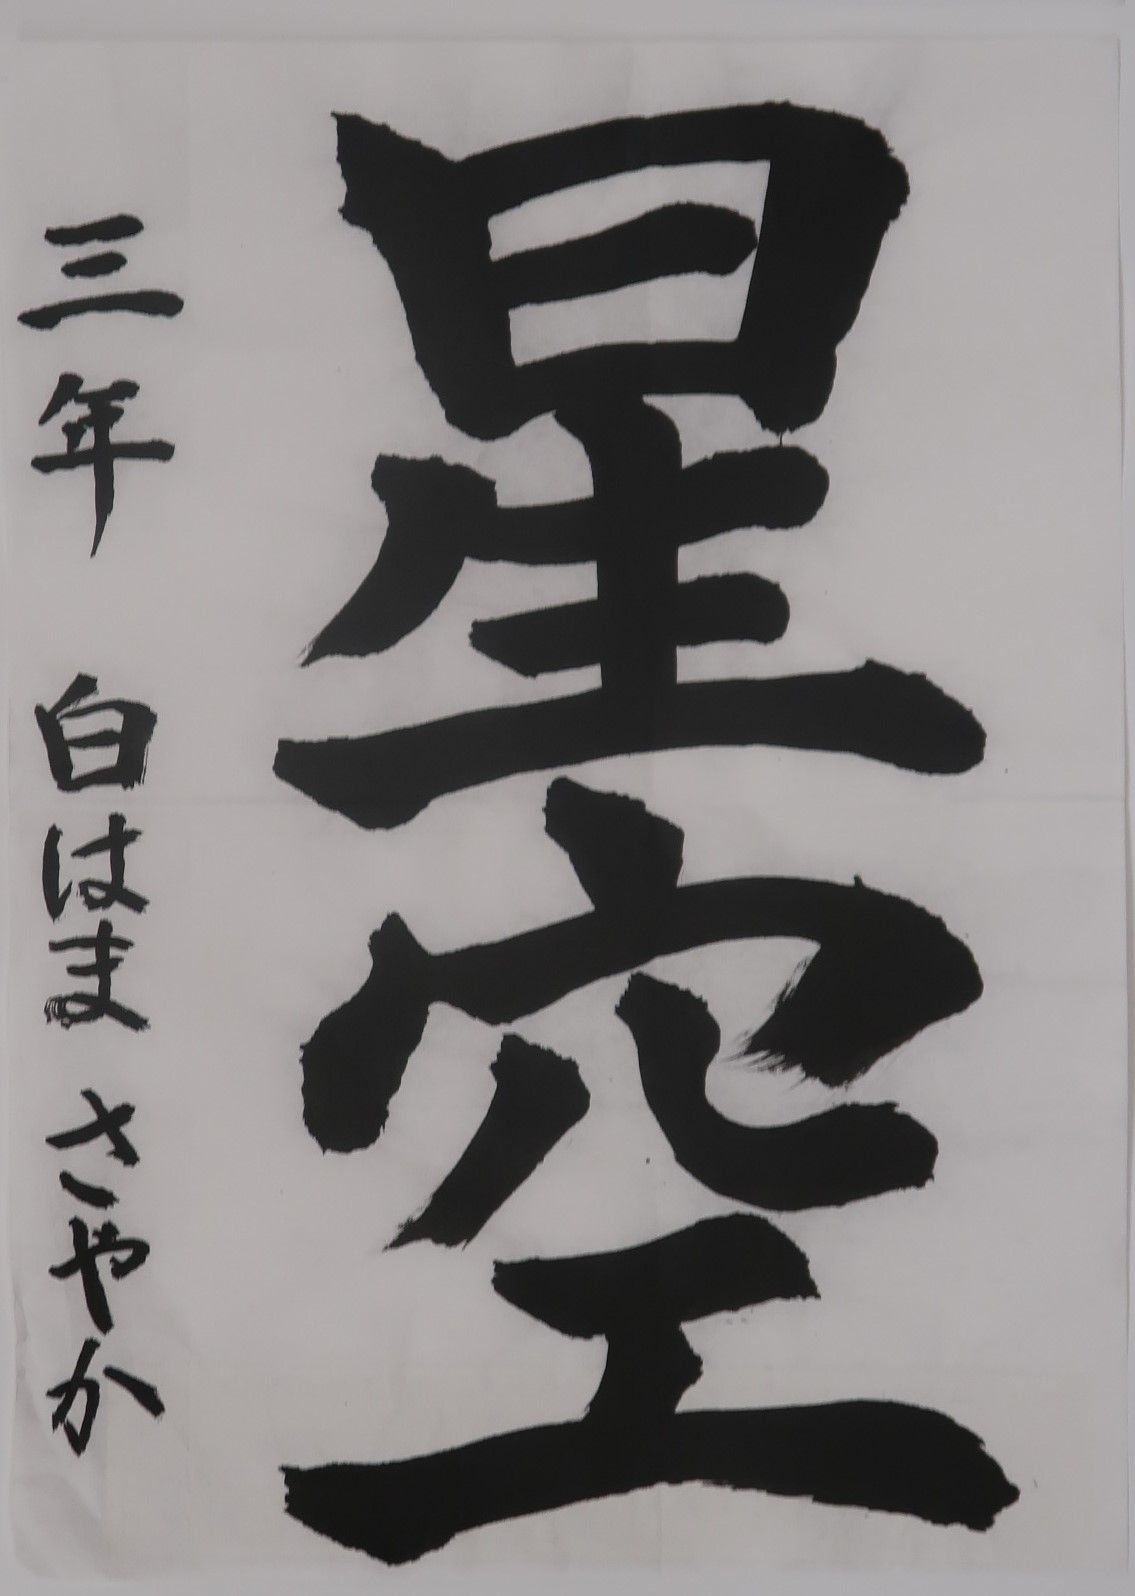 星空
三年 白はま さやか